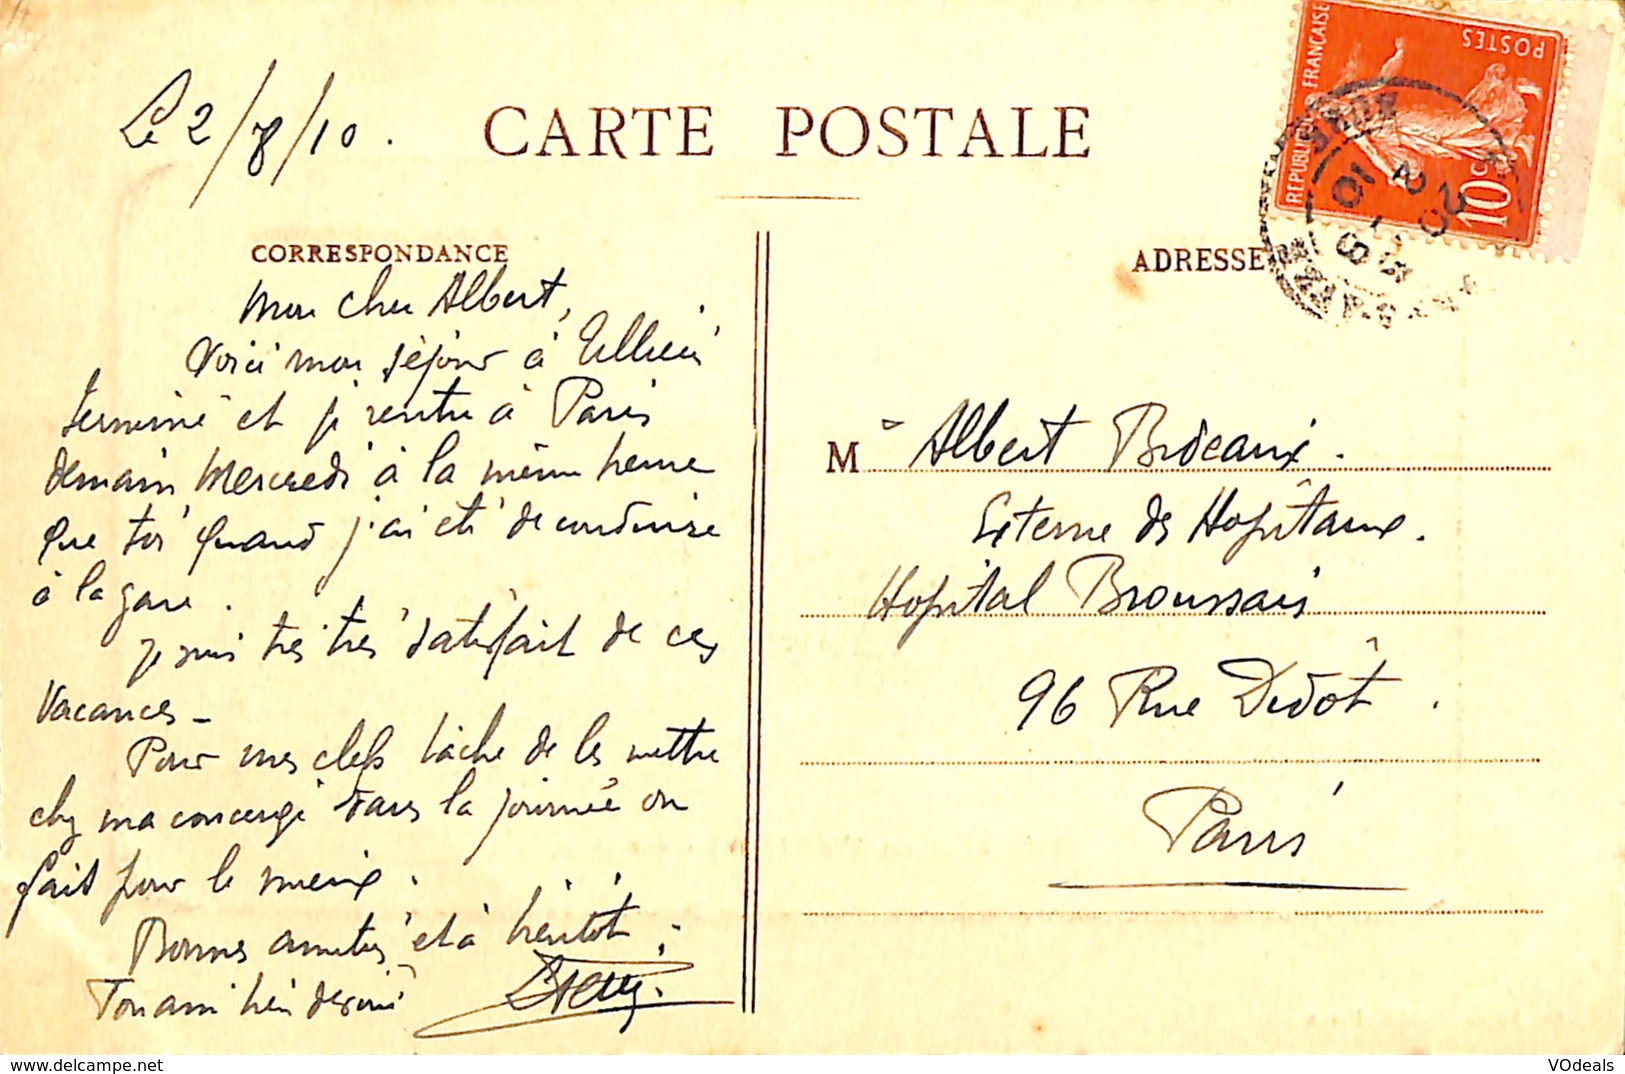 Le 2/8/10.
CARTE POSTALE
REPUBLIQUE FRANÇAISE
POSTES
10 C
CORRESPONDANCE
ADRESSE
Mon cher Albert,
Voici mon séjour à
terminé et je rentre à Paris
demain Mercredi à la même heure
que toi quand j'ai été te conduire
à la gare.
Je suis très très satisfait de ces
Vacances -
Pour mes clefs tâche de les mettre
chez ma concierge dans la journée on
fait pour le mieux.
Bonnes amitiés et à bientôt.
Ton ami bien dévoué
M r Albert
Externe des Hopitaux.
Hopital Broussais
96 Rue Didot.
Paris
VOdeals
© VOdeals